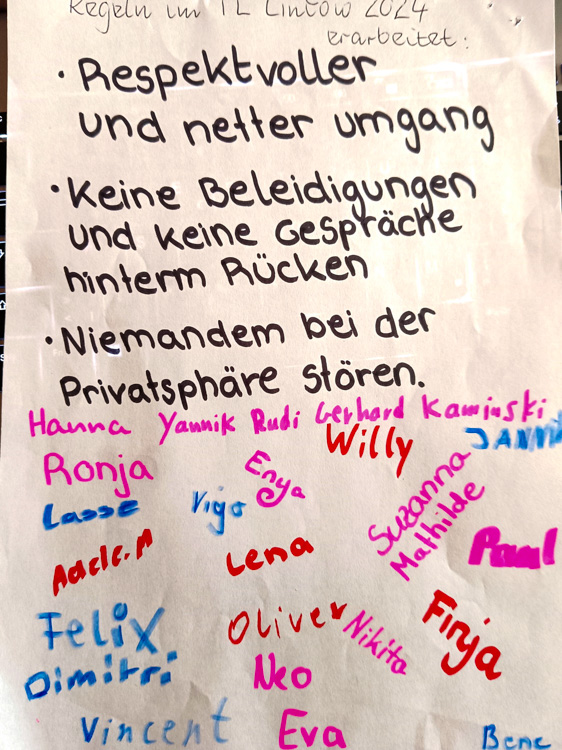 Regeln im TL Lintow 2024
erarbeitet:
· Respektvoller
und netter umgang
· Keine Beleidigungen
und keine Gespräche
hinterm Rücken
· Niemandem bei der
Privatsphäre stören.
Hanna Yannik Rudi Gerhard Kaminski
Willy JANNIK
Ronja Enya
Lasse Vigo Suzanna
Mathilde
Adele.M Lena Paul
Felix Oliver Nikita Finja
Dimitri Neo
Vincent Eva Bene